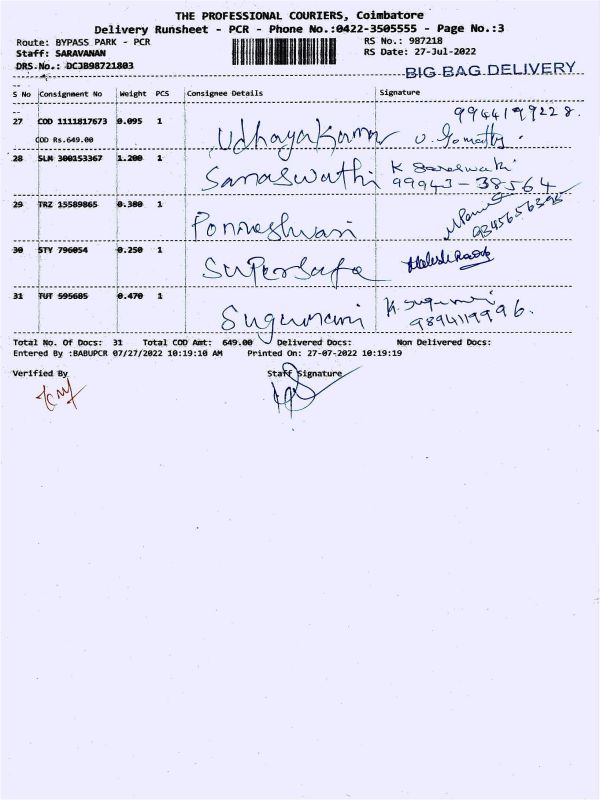 THE PROFESSIONAL COURIERS, Coimbatore
Delivery Runsheet - PCR - Phone No.:0422-3505555 - Page No.:3
Route: BYPASS PARK - PCR RS No.: 987218
Staff: SARAVANAN RS Date: 27-Jul-2022
DRS.No.: DCJB98721803
BIG BAG DELIVERY
S No Consignment No Weight PCS Consignee Details Signature
27 COD 1111817673 0.095 1 9944199228.
COD Rs.649.00 Udhayakumar
28 SLM 300153367 1.200 1 Saraswathi K Saraswathi
99943-38564
29 TRZ 15589865 0.380 1 Ponneshwari
30 STY 796054 0.250 1 Supersafe
31 TUT 595685 0.470 1 Sugumani
9894119996.
Total No. Of Docs: 31 Total COD Amt: 649.00 Delivered Docs: Non Delivered Docs:
Entered By :BABUPCR 07/27/2022 10:19:10 AM Printed On: 27-07-2022 10:19:19
Verified By Staff Signature